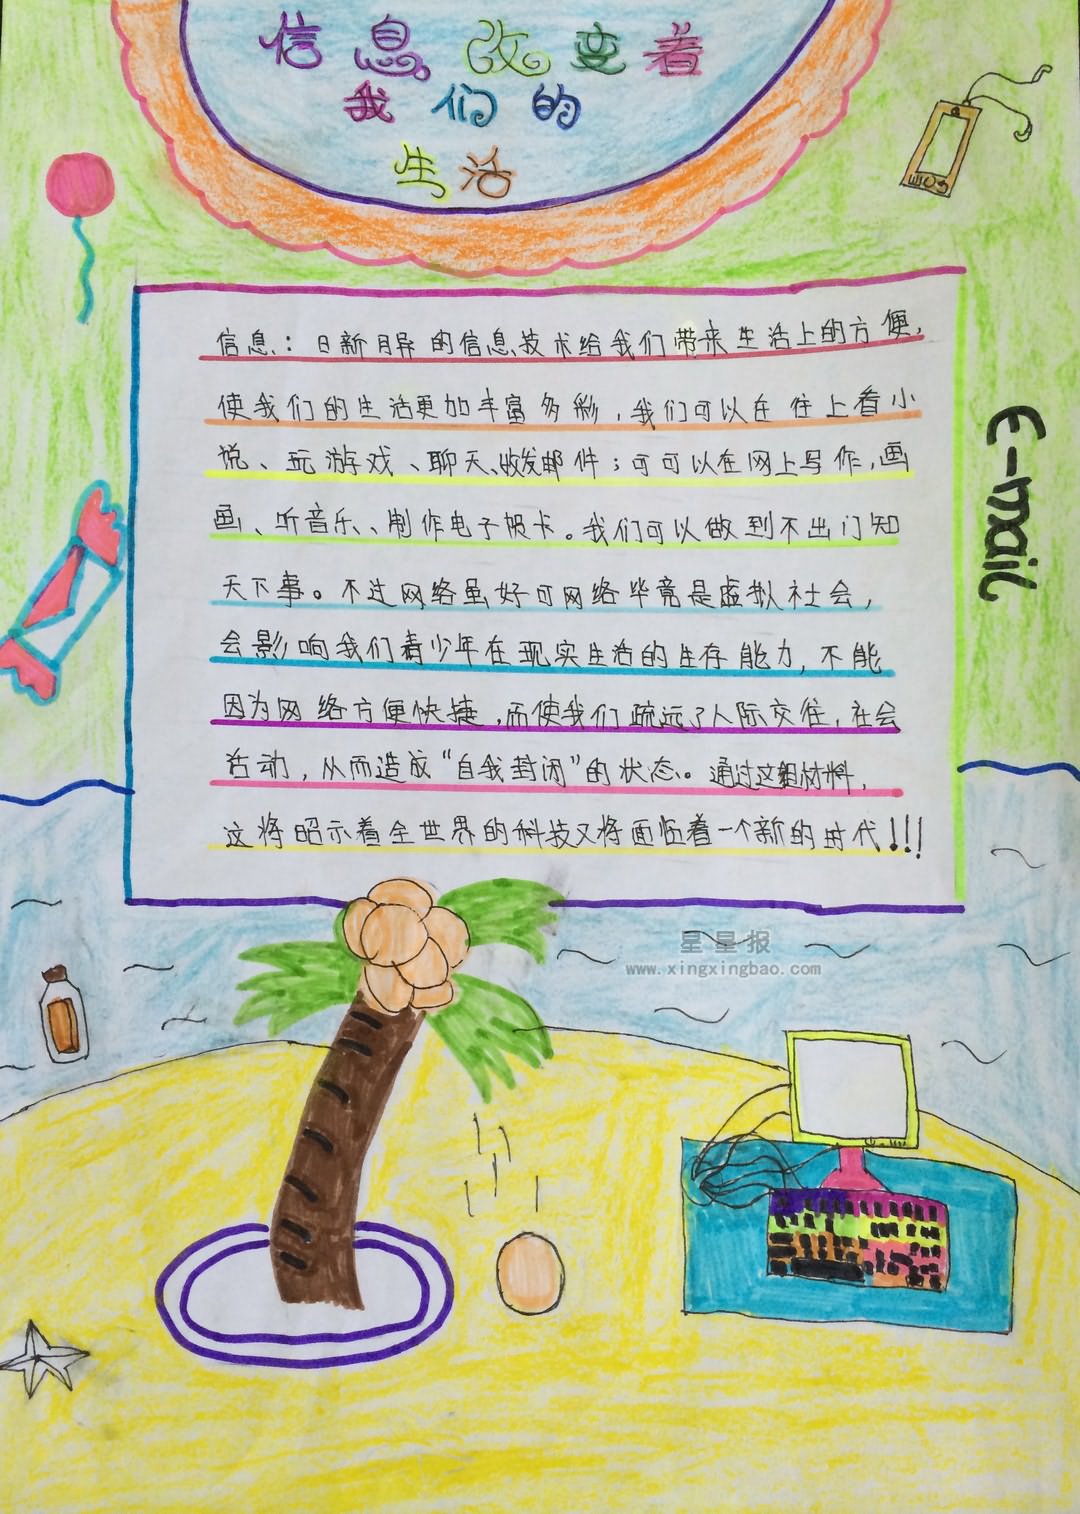 信息改变着
我们的
生活
信息：日新月异的信息技术给我们带来生活上的方便，
使我们的生活更加丰富多彩，我们可以在往上看小
说、玩游戏、聊天、收发邮件；可可以在网上写作，画
画、听音乐、制作电子贺卡。我们可以做到不出门知
天下事。不过网络虽好可网络毕竟是虚拟社会，
会影响我们青少年在现实生活的生存能力，不能
因为网络方便快捷，而使我们疏远了人际交往，社会
活动，从而造成“自我封闭”的状态。通过这组材料，
这将昭示着全世界的科技又将面临着一个新的时代！！！
E-mail
星星报
www.xingxingbao.com